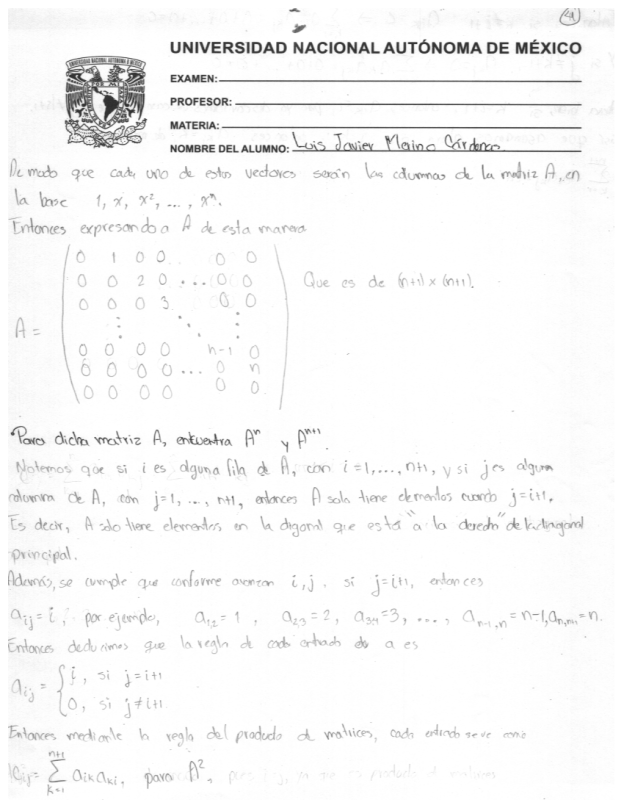 UNIVERSIDAD NACIONAL AUTÓNOMA DE MÉXICO
EXAMEN:
PROFESOR:
MATERIA:
NOMBRE DEL ALUMNO: Luis Javier Merino Cárdenas
De modo que cada uno de estos vectores serán las columnas de la matriz A, en
la base 1, x, x², ..., xⁿ.
Entonces expresando a A de esta manera
0 1 0 0 .. 0 0
0 0 2 0 ... 0 0
0 0 0 3 0 0
A =
0 0 0 0 n-1 0
0 0 0 0 ... 0 n
0 0 0 0 0 0
Que es de (n+1) x (n+1).
Para dicha matriz A, encuentra Aⁿ y Aⁿ⁺¹.
Notemos que si i es alguna fila de A, con i=1,...,n+1, y si j es alguna
columna de A, con j=1, ..., n+1, entonces A solo tiene elementos cuando j=i+1.
Es decir, A solo tiene elementos en la digonal que está "a la derecha" de la diagonal
principal.
Además, se cumple que conforme avanzan i,j, si j=i+1, entonces
aᵢⱼ=i, por ejemplo, a₁₂=1, a₂,₃=2, a₃,₄=3, ..., aₙ₋₁,ₙ=n-1, aₙ,ₙ₊₁=n.
Entonces deducimos que la regla de cada entrada de a es
aᵢⱼ = { i, si j=i+1
0, si j≠i+1.
Entonces mediante la regla del producto de matrices, cada entrada se ve como
Cᵢⱼ= Σ aᵢₖaₖⱼ, para A²,
n+1
k=1